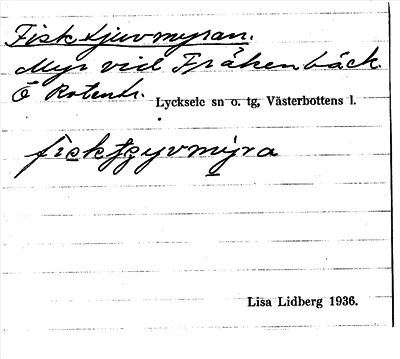 Fisktjuvmyran.
Myr vid Fräkenbäck.
Ö Rotentr. Lycksele sn o. tg, Västerbottens l.
fisktyvmýra
Lisa Lidberg 1936.